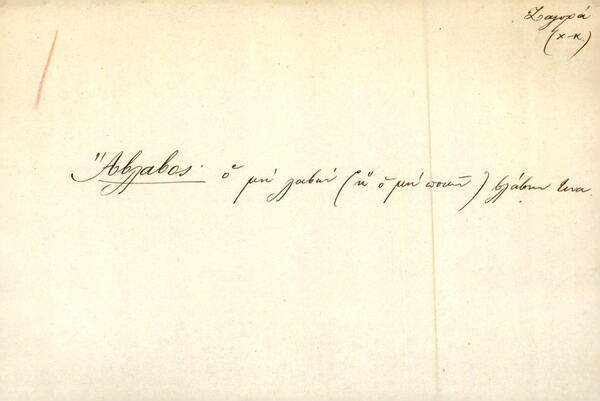 Ζαγορά
(χ-κ.)
Ἄβλαβος· ὁ μὴ λαβὼν (ἢ ὁ μὴ ποιῶν) βλάβην τινα.